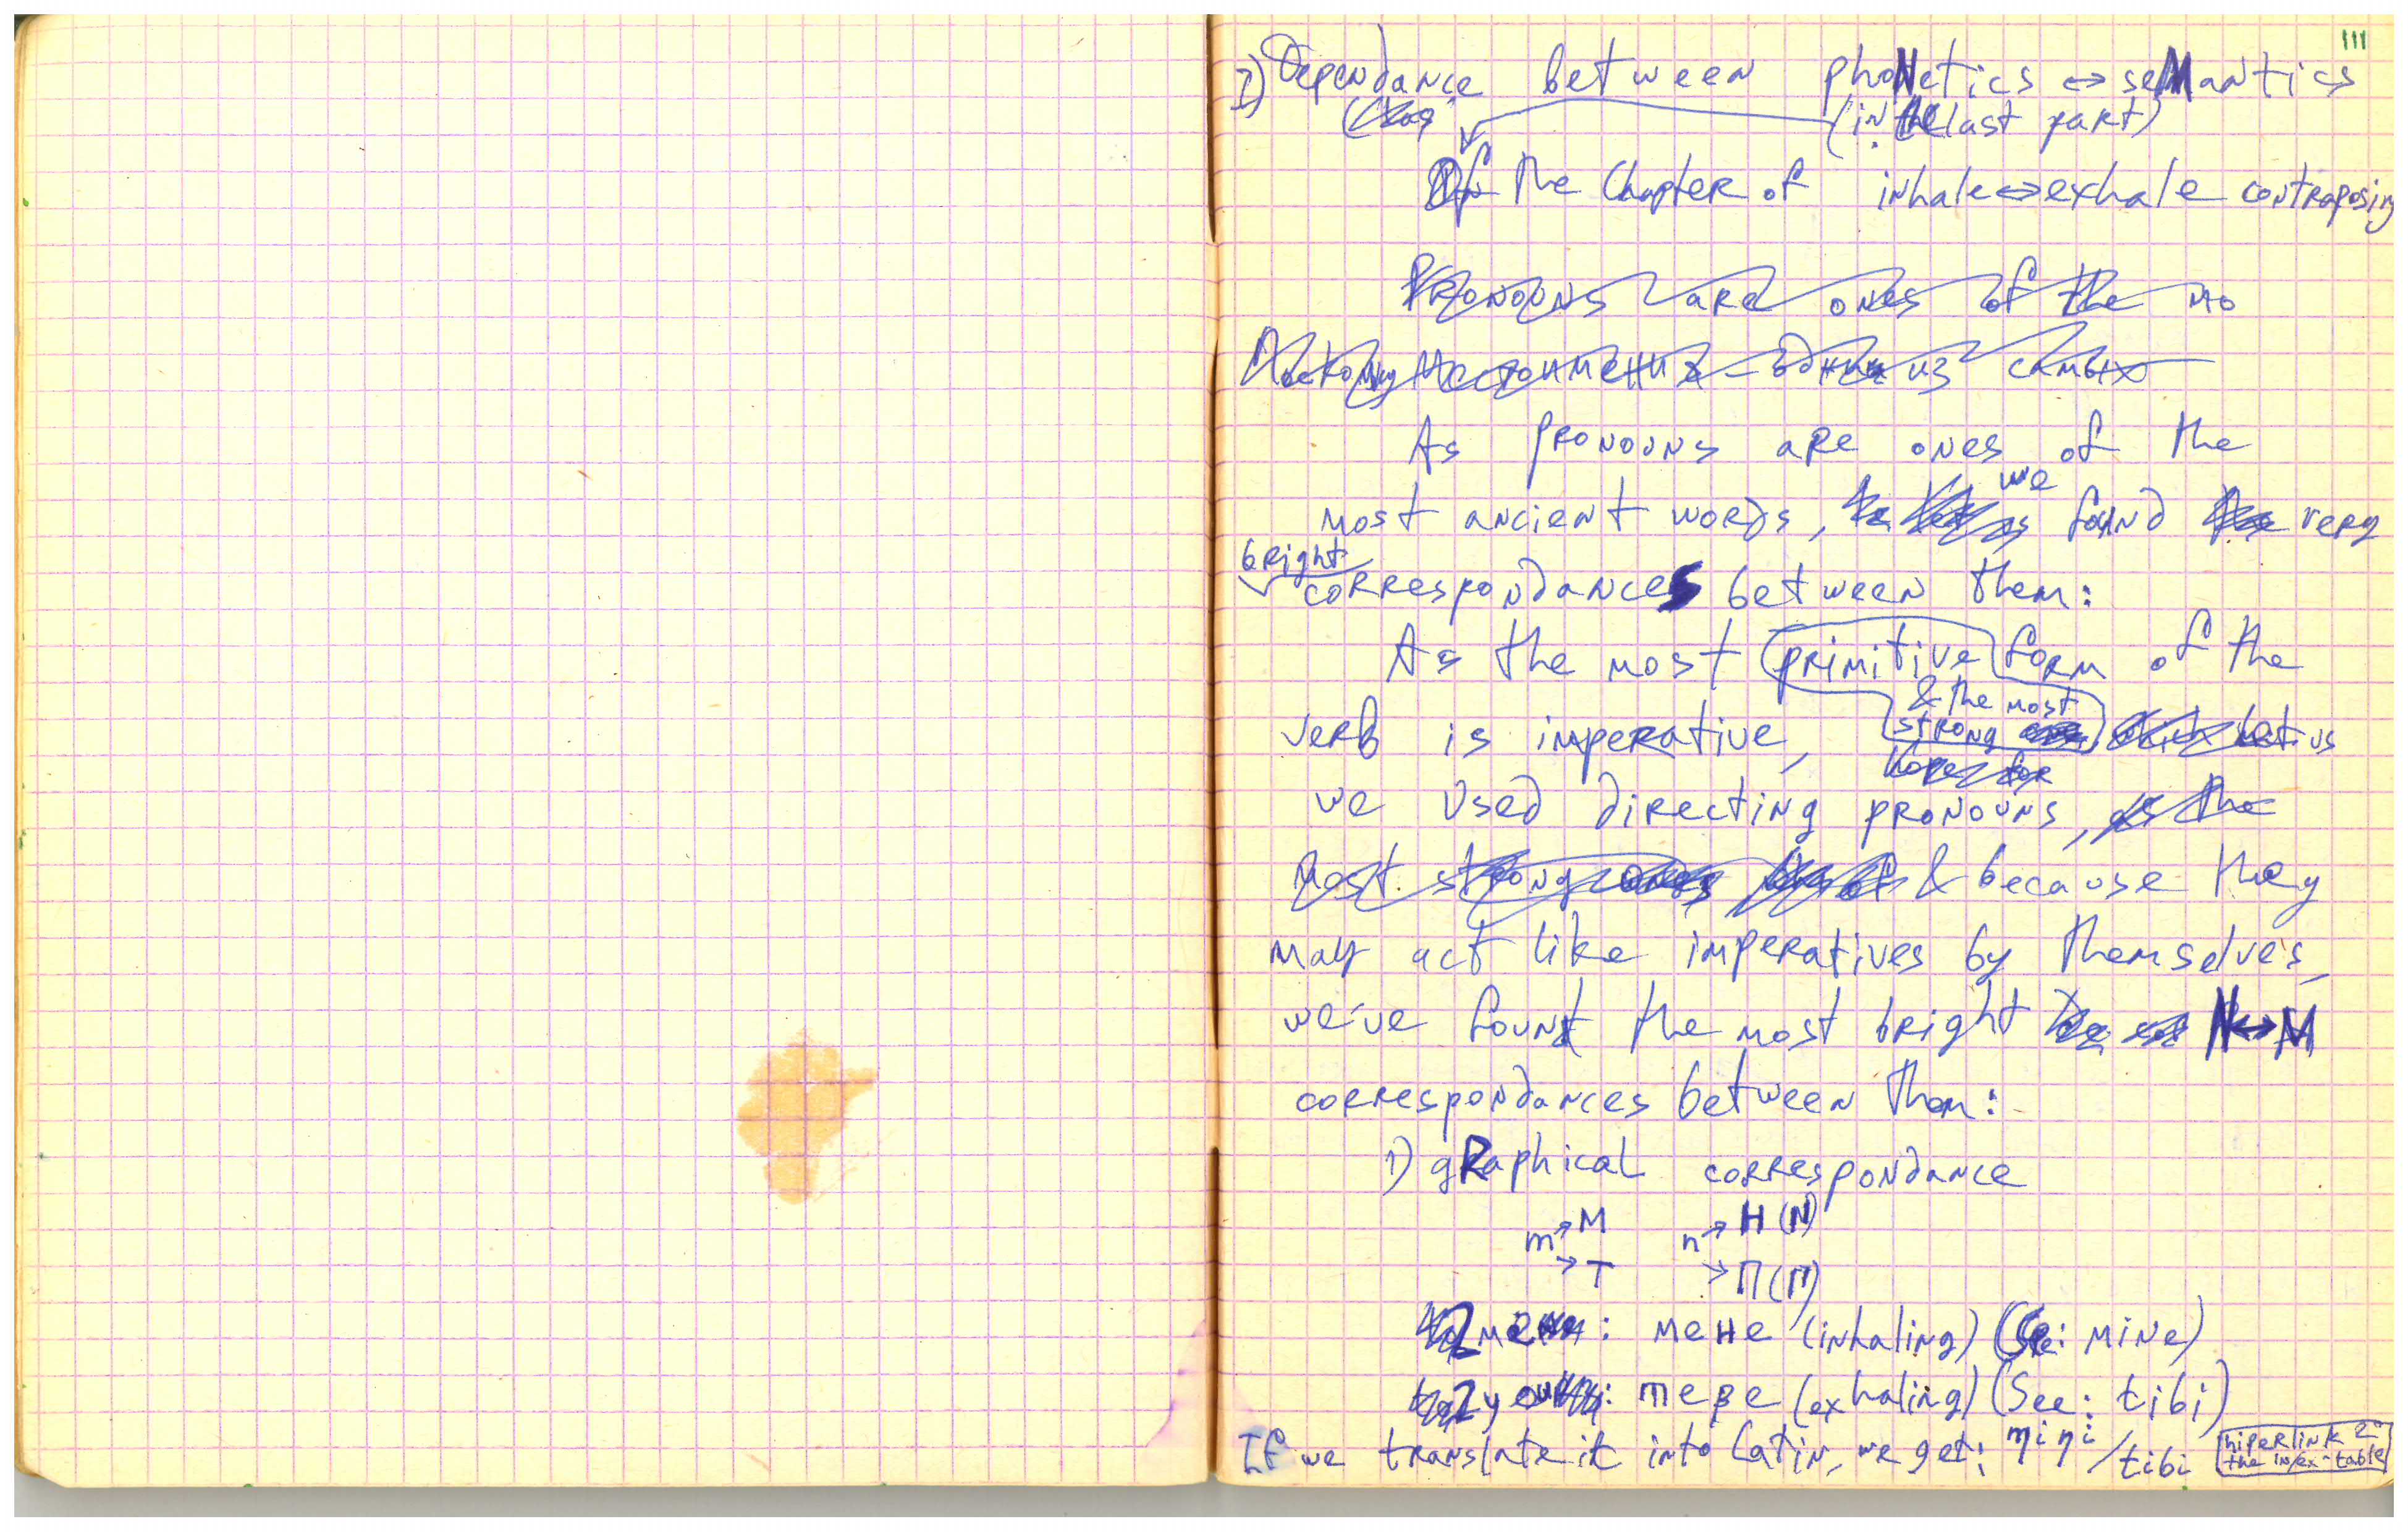 III
I) Dependance between phoNetics ↔ seMantics
(in the last part)
Of the Chapter of inhale ↔ exhale contraposing
Pronouns are ones of the mo
Местоимения – одни из самых
As pronouns are ones of the
we
most ancient words, found very
bright
correspondances between them:
As the most primitive form of the
& the most
verb is imperative, strong let us
we used directing pronouns, as the
Most strong ones & because they
may act like imperatives by themselves,
we've found the most bright N↔M
correspondances between them:
1) gRaphical correspondance
m → M n → H (N)
→ T → П (П)
me: мене (inhaling) (See: mine)
you: тебе (exhaling) (See: tibi)
If we translate it into Latin, we get: mini / tibi
hiperlink 2
the index-table